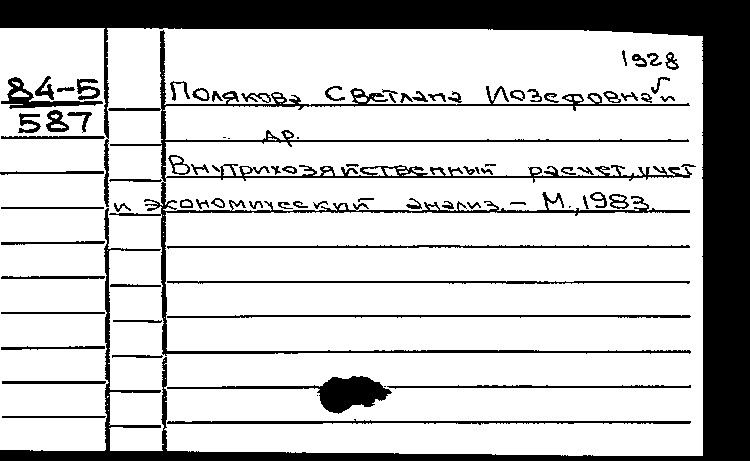 1928
84-5
587
Полякова, Светлана Иозефовна и
др.
Внутрихозяйственный расчет, учет
и экономический анализ. - М., 1983.